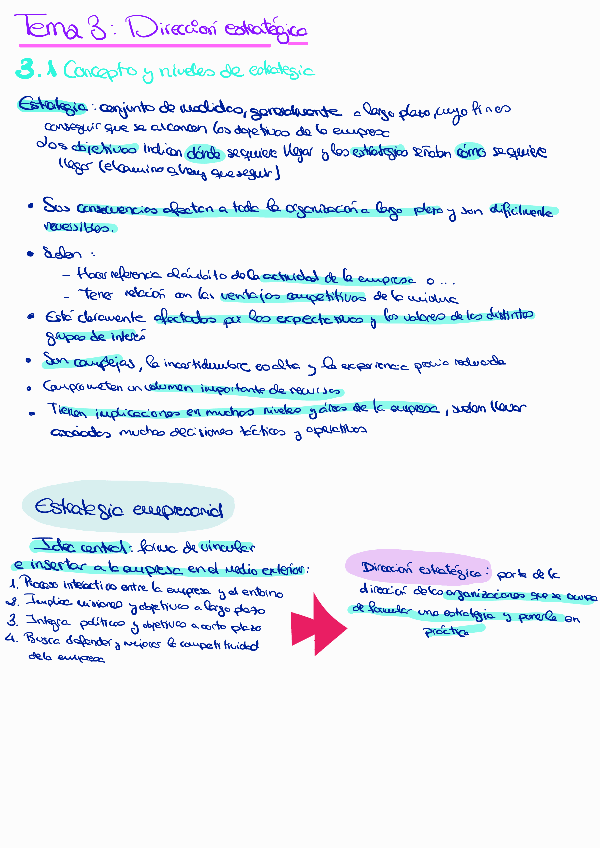 Tema 3: Dirección estratégica
3.1 Concepto y niveles de estrategia
Estrategia: conjunto de medidas, generalmente a largo plazo, cuyo fin es
conseguir que se alcancen los objetivos de la empresa
Los objetivos indican dónde se quiere llegar y las estrategias señalan cómo se quiere
llegar (el camino q hay que seguir)
• Sus consecuencias afectan a toda la organización a largo plazo y son difícilmente
reversibles.
• Suelen:
– Hacer referencia al ámbito de la actividad de la empresa o ...
– Tener relación con las ventajas competitivas de la misma
• Está claramente afectadas por las expectativas y los valores de los distintos
grupos de interés
• Son complejas, la incertidumbre es alta y la experiencia previa reducida
• Comprometen un volumen importante de recursos
• Tienen implicaciones en muchos niveles y áreas de la empresa, suelen llevar
asociadas muchas decisiones tácticas y operativas
Estrategia empresarial
Idea central: forma de vincular
e insertar a la empresa en el medio exterior:
1. Proceso interactivo entre la empresa y el entorno
2. Implica misiones y objetivos a largo plazo
3. Integra políticas y objetivos a corto plazo
4. Busca defender y mejorar la competitividad
de la empresa
Dirección estratégica: parte de la
dirección de las organizaciones que se ocupa
de formular una estrategia y ponerla en
práctica